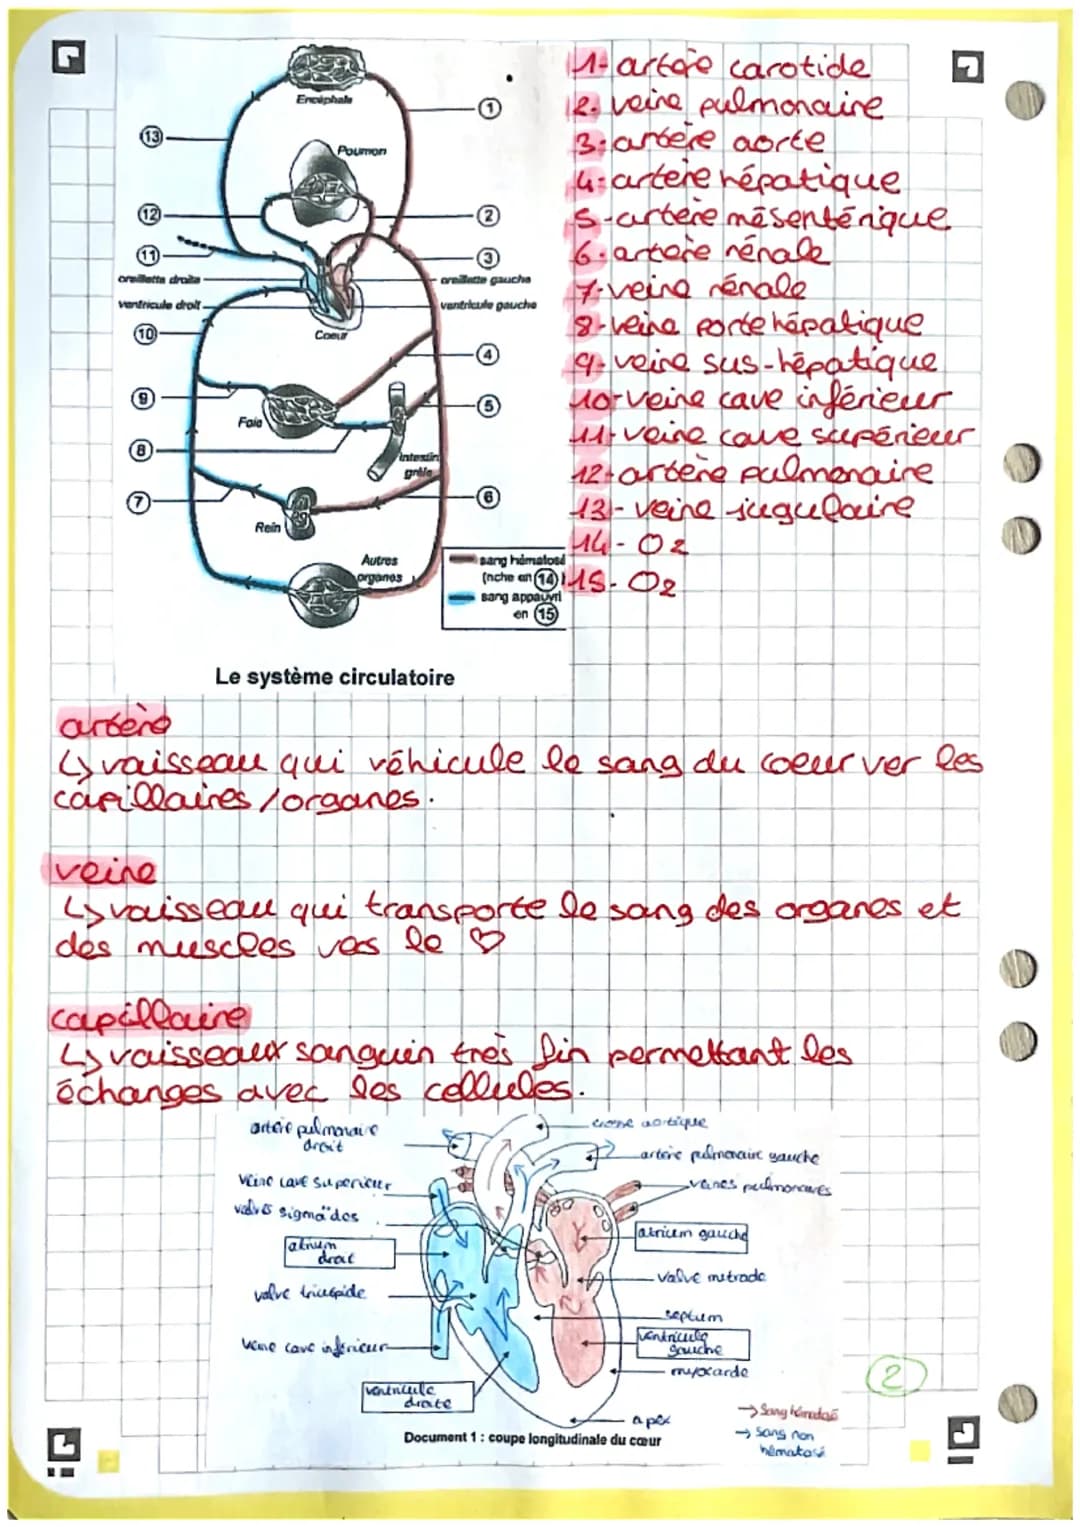 Encéphale
1
13
Poumon
12
2
11
3
oreillette droite
oreillette gauche
ventricule droit
ventricule gauche
Coeur
10
4
9
5
Foie
8
Intestin
grêle
7
6
Rein
Autres
organes
sang hématosé
(riche en 14)
sang appauvri
en 15
Le système circulatoire
1- artère carotide
2. veine pulmonaire
3- artère aorte
4- artère hépatique
5- artère mésentérique
6. artère rénale
7- veine rénale
8- veine porte hépatique
9- veine sus-hépatique
10- veine cave inférieur
11- veine cave supérieur
12- artère pulmonaire
13- veine jugulaire
14- O2
15- O2
artère
↳ vaisseau qui véhicule le sang du coeur ver les
capillaires / organes.
veine
↳ vaisseau qui transporte le sang des organes et
des muscles vers le ♡
capillaire
↳ vaisseaux sanguin très fin permettant les
échanges avec les cellules.
artère pulmonaire
droit
crosse aortique
artère pulmonaire gauche
veine cave superieur
veines pulmonaires
valves sigmoïdes
atrium
droit
atrium gauche
valve tricuspide
valve mitrade
septum
veine cave inférieur
ventricule
gauche
myocarde
ventricule
droite
apex
2
→ Sang hématosé
→ Sang non
hématosé
Document 1 : coupe longitudinale du cœur